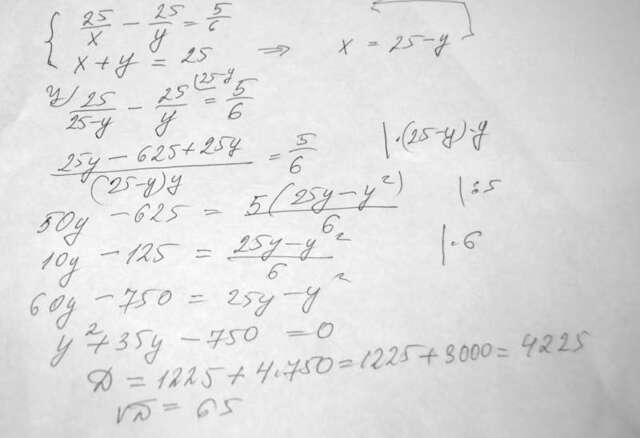 { 25/x − 25/y = 5/6
x + y = 25 ⇒ x = 25−y
y) 25/(25−y) − 25/y (25−y = 5/6
(25y − 625 + 25y)/((25−y)y) = 5/6 |·(25−y)·y
50y − 625 = 5(25y − y²)/6 |:5
10y − 125 = (25y − y²)/6 |·6
60y − 750 = 25y − y²
y² + 35y − 750 = 0
D = 1225 + 4·750 = 1225 + 3000 = 4225
√D = 65